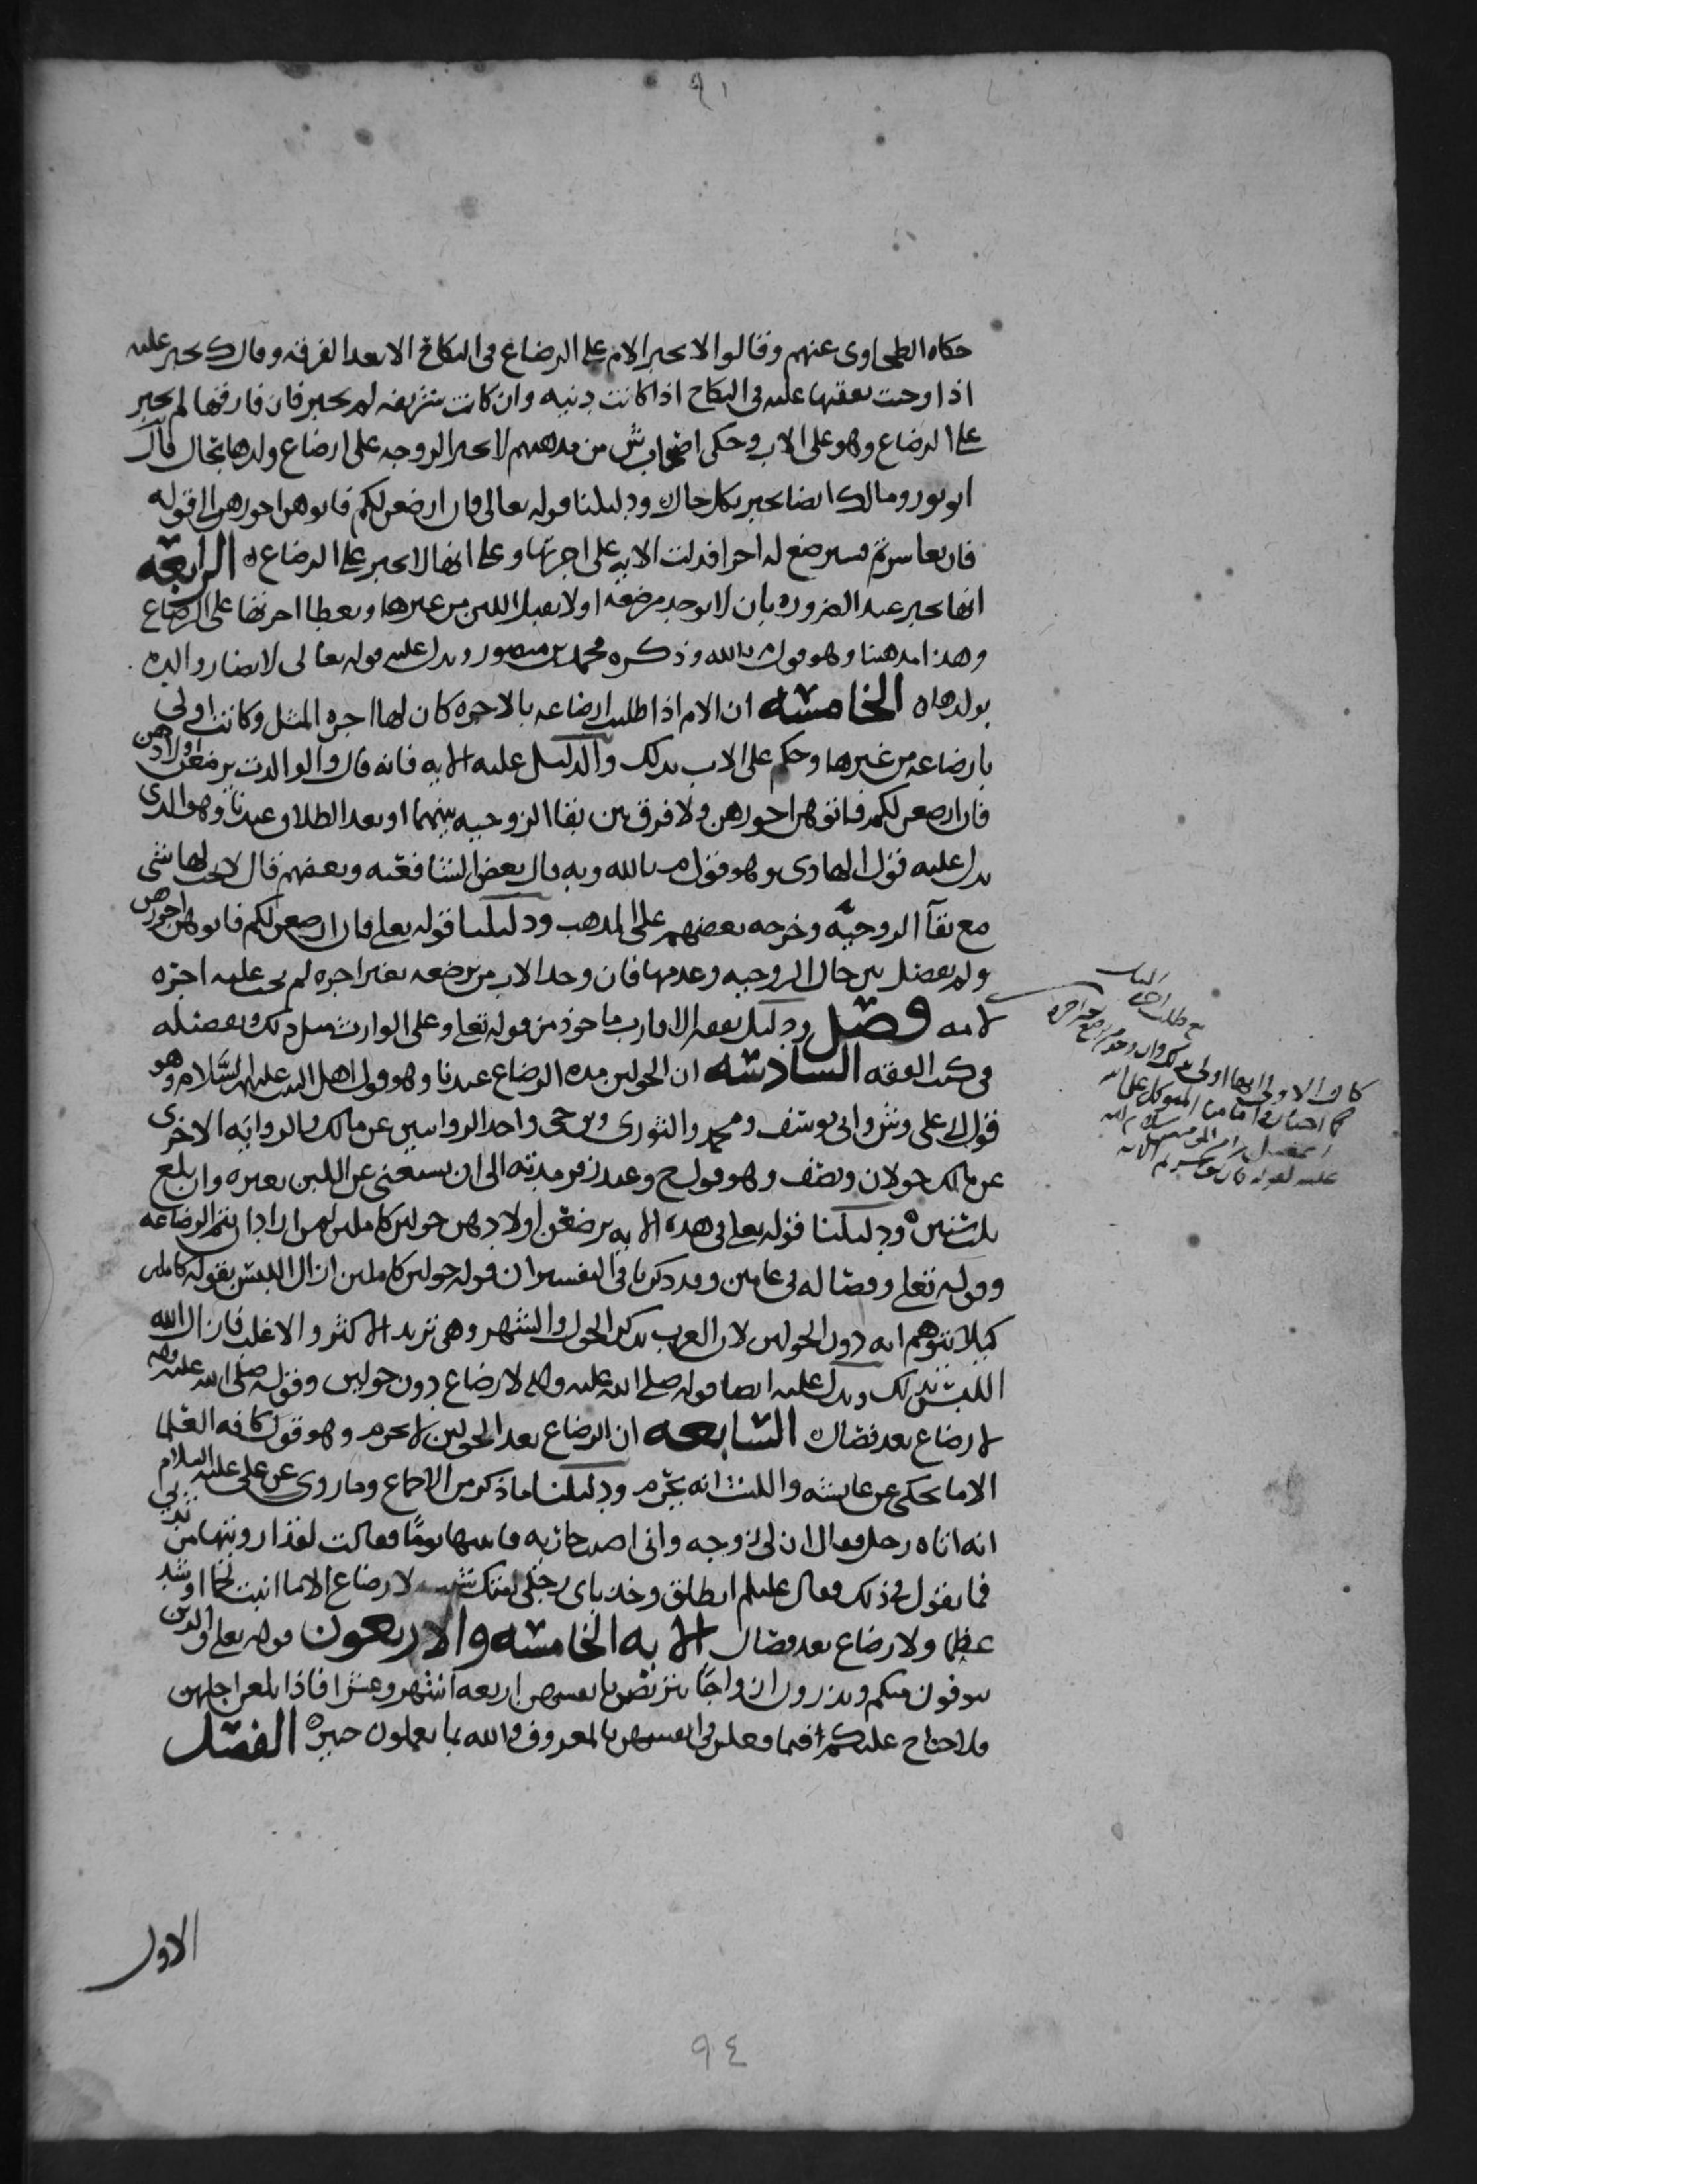 ٩١
حكاه الطحاوى عنهم وقالوا لا تجبر الام على الرضاع فى النكاح الا بعد الفرقه وقال ك تجبر عليه
اذا وجبت نفقتها عليه فى النكاح اذا كانت دنيه وان كانت شريفه لم تجبر فان فارقها لم تجبر
على الرضاع وهو على الاب وحكى اصحاب ش من مذهبهم لا تجبر الزوجه على ارضاع ولدها بحال قال
ابو ثور ومالك ايضا تجبر بكل حال ودليلنا قوله تعالى فان ارضعن لكم فاتوهن اجورهن الى قوله
فان تعاسرتم فسترضع له اخرا فدلت الايه على اجرتها وعلى انها لا تجبر على الرضاع ه الرابعه
انها تجبر عند الضروره بان لا توجد مرضعه او لا يقبل اللبن من غيرها وتعطا اجرتها على الرضاع
وهذا مذهبنا وهو قول م بالله وذكره محمد بن منصور ويدل عليه قوله تعالى لا تضار والده
بولدها ه الخامسه ان الام اذا طلبت ارضاعه بالاجره كان لها اجره المثل وكانت اولى
بارضاعه من غيرها وحكم على الاب بذلك والدليل عليه الايه فانه قال والوالدت يرضعن اولادهن
فان ارضعن لكم فاتوهن اجورهن ولا فرق بين بقا الزوجيه بينهما او بعد الطلاق عندنا وهو الذى
يدل عليه قول الهادى وهو قول م بالله وبه قال بعض الشافعيه وبعضهم قال لا يجب لها شى
مع بقآ الزوجيه وخرجه بعضهم على المذهب ودليلنا قوله تعلى فان ارضعن لكم فاتوهن اجورهن
ولم يفصل بين حال الزوجيه وعدمها فان وجد الاب من ترضعه بغير اجره لم يجب عليه اجره
لامه فصل ودليل نفقه الاقارب ماخوذ من قوله تعلى وعلى الوارث مثل ذلك وتفصيله
فى كتب الفقه السادسه ان الحولين مده الرضاع عندنا وهو قول اهل البيت عليهم السلام وهو
قول على وش وابى يوسف ومحمد والثورى واحد الروايتين عن مالك والروايه الاخرى
عن مالك حولان ونصف وهو قول ح وعند زفر مدته الى ان يستغنى عن اللبن بغيره وان بلغ
ثلث سنين ه ودليلنا قوله تعلى فى هذه الايه يرضعن اولادهن حولين كاملين لمن اراد ان يتم الرضاعه
وقوله تعلى وفصاله فى عامين وقد ذكرنا فى التفسير ان قوله حولين كاملين ازال اللبس بقوله كاملين
كيلا يتوهم انه دون الحولين لان العرب تذكر الحول والشهر وهى تريد الاكثر والاغلب فازال الله
اللبس بذلك ويدل عليه ايضا قوله صلى الله عليه واله لا رضاع دون حولين وقوله صلى الله عليه واله
لا رضاع بعد فصال ه السابعه ان الرضاع بعد الحولين لا يحرم وهو قول كافه العلما
الا ما يحكى عن عايشه والليث انه يحرم ودليلنا ما ذكر من الاجماع وما روى عن على عليه السلام
انه اتاه رجل فقال ان لى زوجه وانى اصبت جاريه فاتيتها يومًا فقالت لقد ارويتها من ثديى
فما تقول فى ذلك فقال عليلم انطلق وخذ باى رجلى امتك شيت لا رضاع الا ما انبت لحما او شد
عظما ولا رضاع بعد فصال الايه الخامسه والاربعون قوله تعلى والذين
يتوفون منكم ويذرون ازواجًا يتربصن بانفسهن اربعه اشهر وعشرا فاذا بلغن اجلهن
فلا جناح عليكم فيما فعلن فى انفسهن بالمعروف والله بما تعملون خبير ه الفصل
الاول
كان الاولى انها اولى
كما اختاره امامنا المتوكل على الله
٩٤